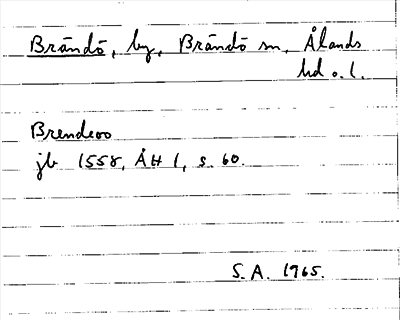 Brändö, by, Brändö sn, Ålands
hd o. l.
Brendeoo
jb 1558, ÅH 1, s. 60.
S.A. 1965.